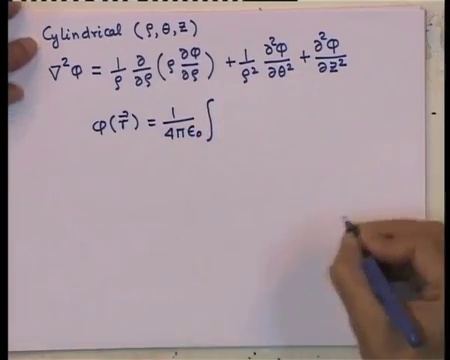 Cylindrical (ρ, θ, z)
∇²φ = 1/ρ ∂/∂ρ (ρ ∂φ/∂ρ) + 1/ρ² ∂²φ/∂θ² + ∂²φ/∂z²
φ(r⃗) = 1/4πε₀ ∫